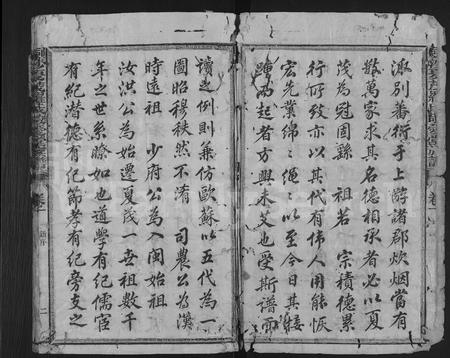 派别蕃衍于上游諸郡炊烟當有
數萬家求其名德相承者必以夏
茂為冠固縣 祖若 宗積德累
行所致亦以其代有偉人用能恢
宏先業綿綿繩繩以至今日其接
踵而起者方興未艾也受斯譜而
讀之例則兼仿歐蘇以五代為一
圖昭穆秩然不淆 司農公為漢
時遠祖 少府公為入閩始祖
汝洪公為始遷夏茂一世祖數千
年之世系瞭如也道學有紀儒宦
有紀潛德有紀節孝有紀旁支之